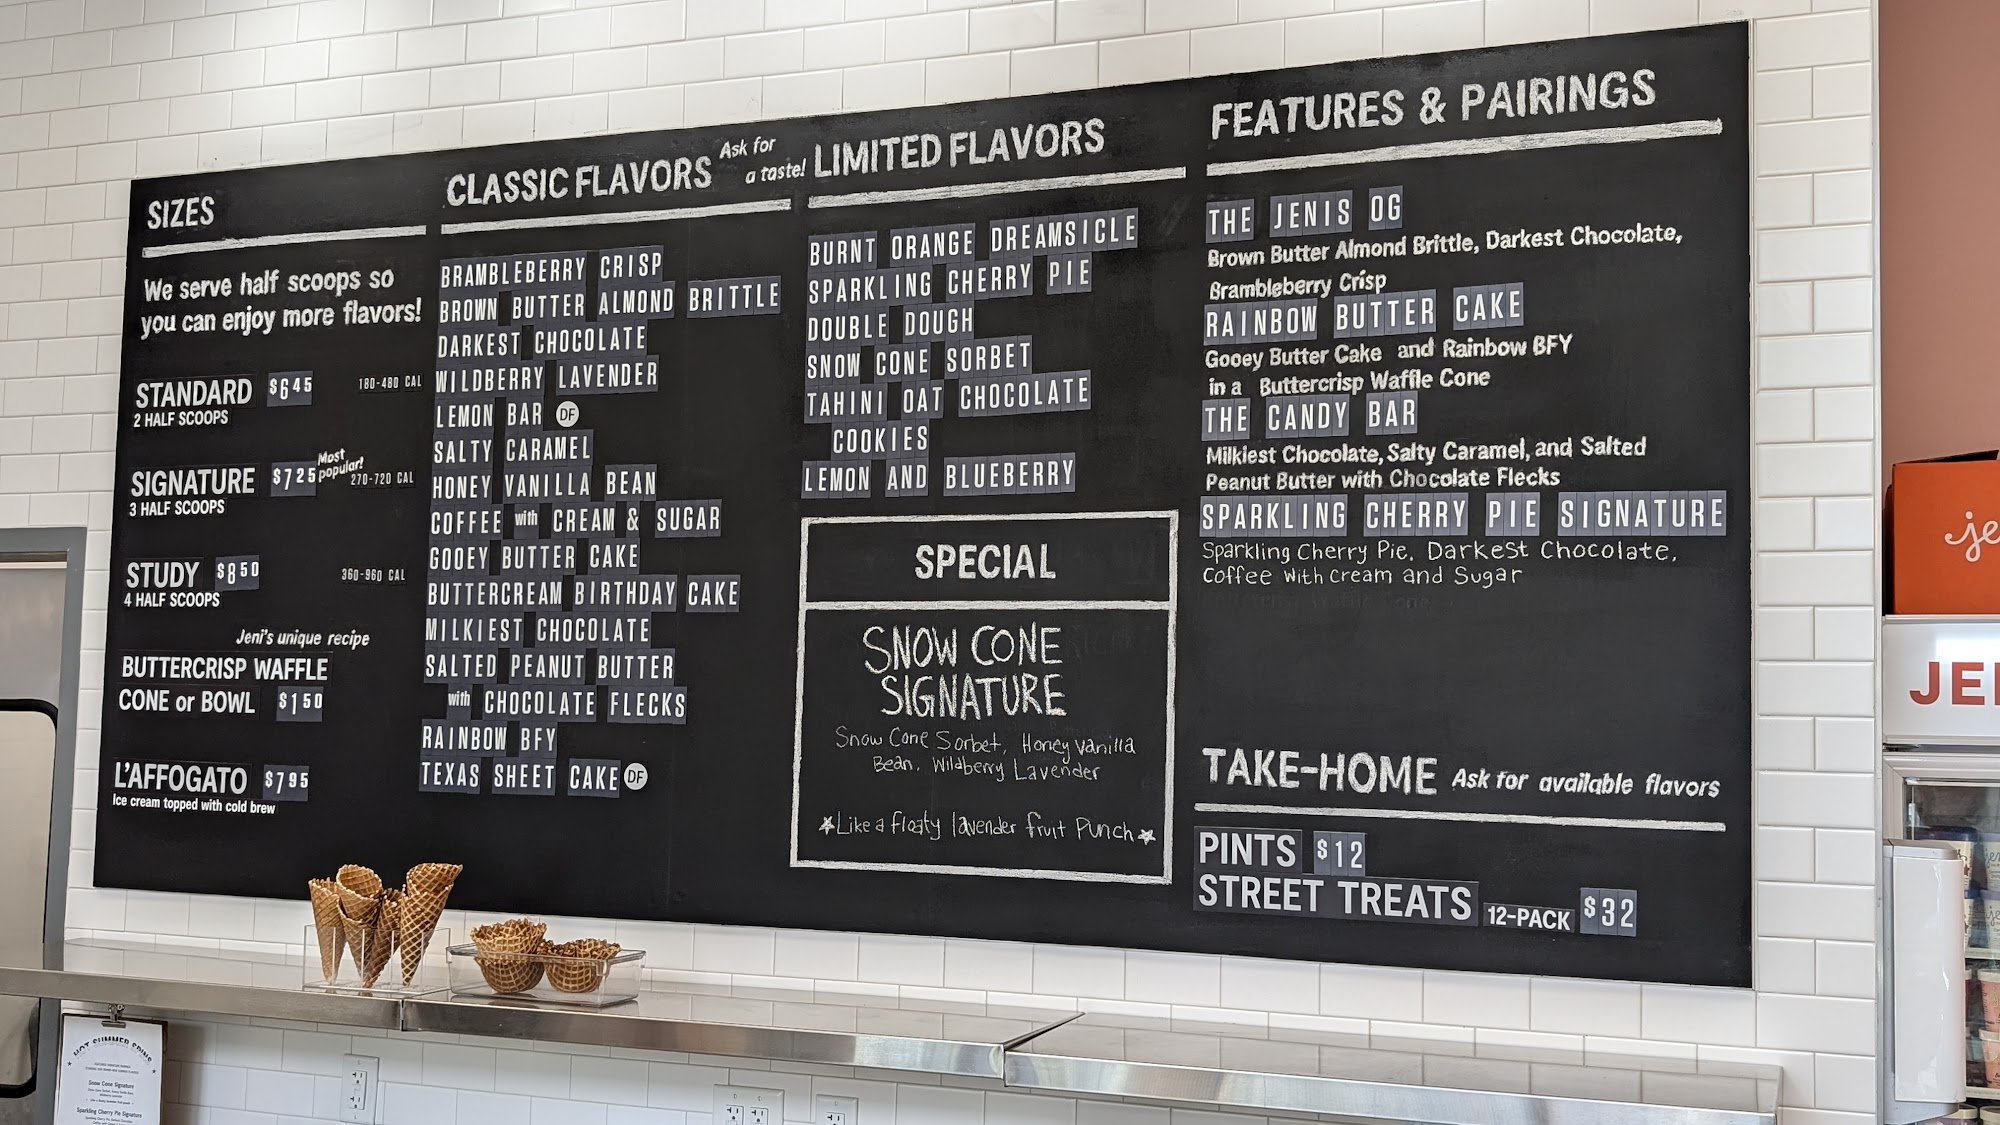 SIZES
We serve half scoops so
you can enjoy more flavors!
STANDARD $645 180-480 CAL
2 HALF SCOOPS
SIGNATURE $725 Most popular! 270-720 CAL
3 HALF SCOOPS
STUDY $850 360-960 CAL
4 HALF SCOOPS
Jeni's unique recipe
BUTTERCRISP WAFFLE
CONE or BOWL $150
L'AFFOGATO $795
Ice cream topped with cold brew
CLASSIC FLAVORS Ask for
a taste!
BRAMBLEBERRY CRISP
BROWN BUTTER ALMOND BRITTLE
DARKEST CHOCOLATE
WILDBERRY LAVENDER
LEMON BAR DF
SALTY CARAMEL
HONEY VANILLA BEAN
COFFEE with CREAM & SUGAR
GOOEY BUTTER CAKE
BUTTERCREAM BIRTHDAY CAKE
MILKIEST CHOCOLATE
SALTED PEANUT BUTTER
with CHOCOLATE FLECKS
RAINBOW BFY
TEXAS SHEET CAKE DF
LIMITED FLAVORS
BURNT ORANGE DREAMSICLE
SPARKLING CHERRY PIE
DOUBLE DOUGH
SNOW CONE SORBET
TAHINI OAT CHOCOLATE
COOKIES
LEMON AND BLUEBERRY
SPECIAL
SNOW CONE
SIGNATURE
Snow Cone Sorbet, Honey Vanilla
Bean, Wildberry Lavender
Like a floaty lavender fruit Punch
FEATURES & PAIRINGS
THE JENIS OG
Brown Butter Almond Brittle, Darkest Chocolate,
Brambleberry Crisp
RAINBOW BUTTER CAKE
Gooey Butter Cake and Rainbow BFY
in a Buttercrisp Waffle Cone
THE CANDY BAR
Milkiest Chocolate, Salty Caramel, and Salted
Peanut Butter with Chocolate Flecks
SPARKLING CHERRY PIE SIGNATURE
Sparkling Cherry Pie, Darkest Chocolate,
Coffee With Cream and Sugar
TAKE-HOME Ask for available flavors
PINTS $12
STREET TREATS 12-PACK $32
je
JE
HOT SUMMER
Snow Cone Signature
Sparkling Cherry Pie Signature